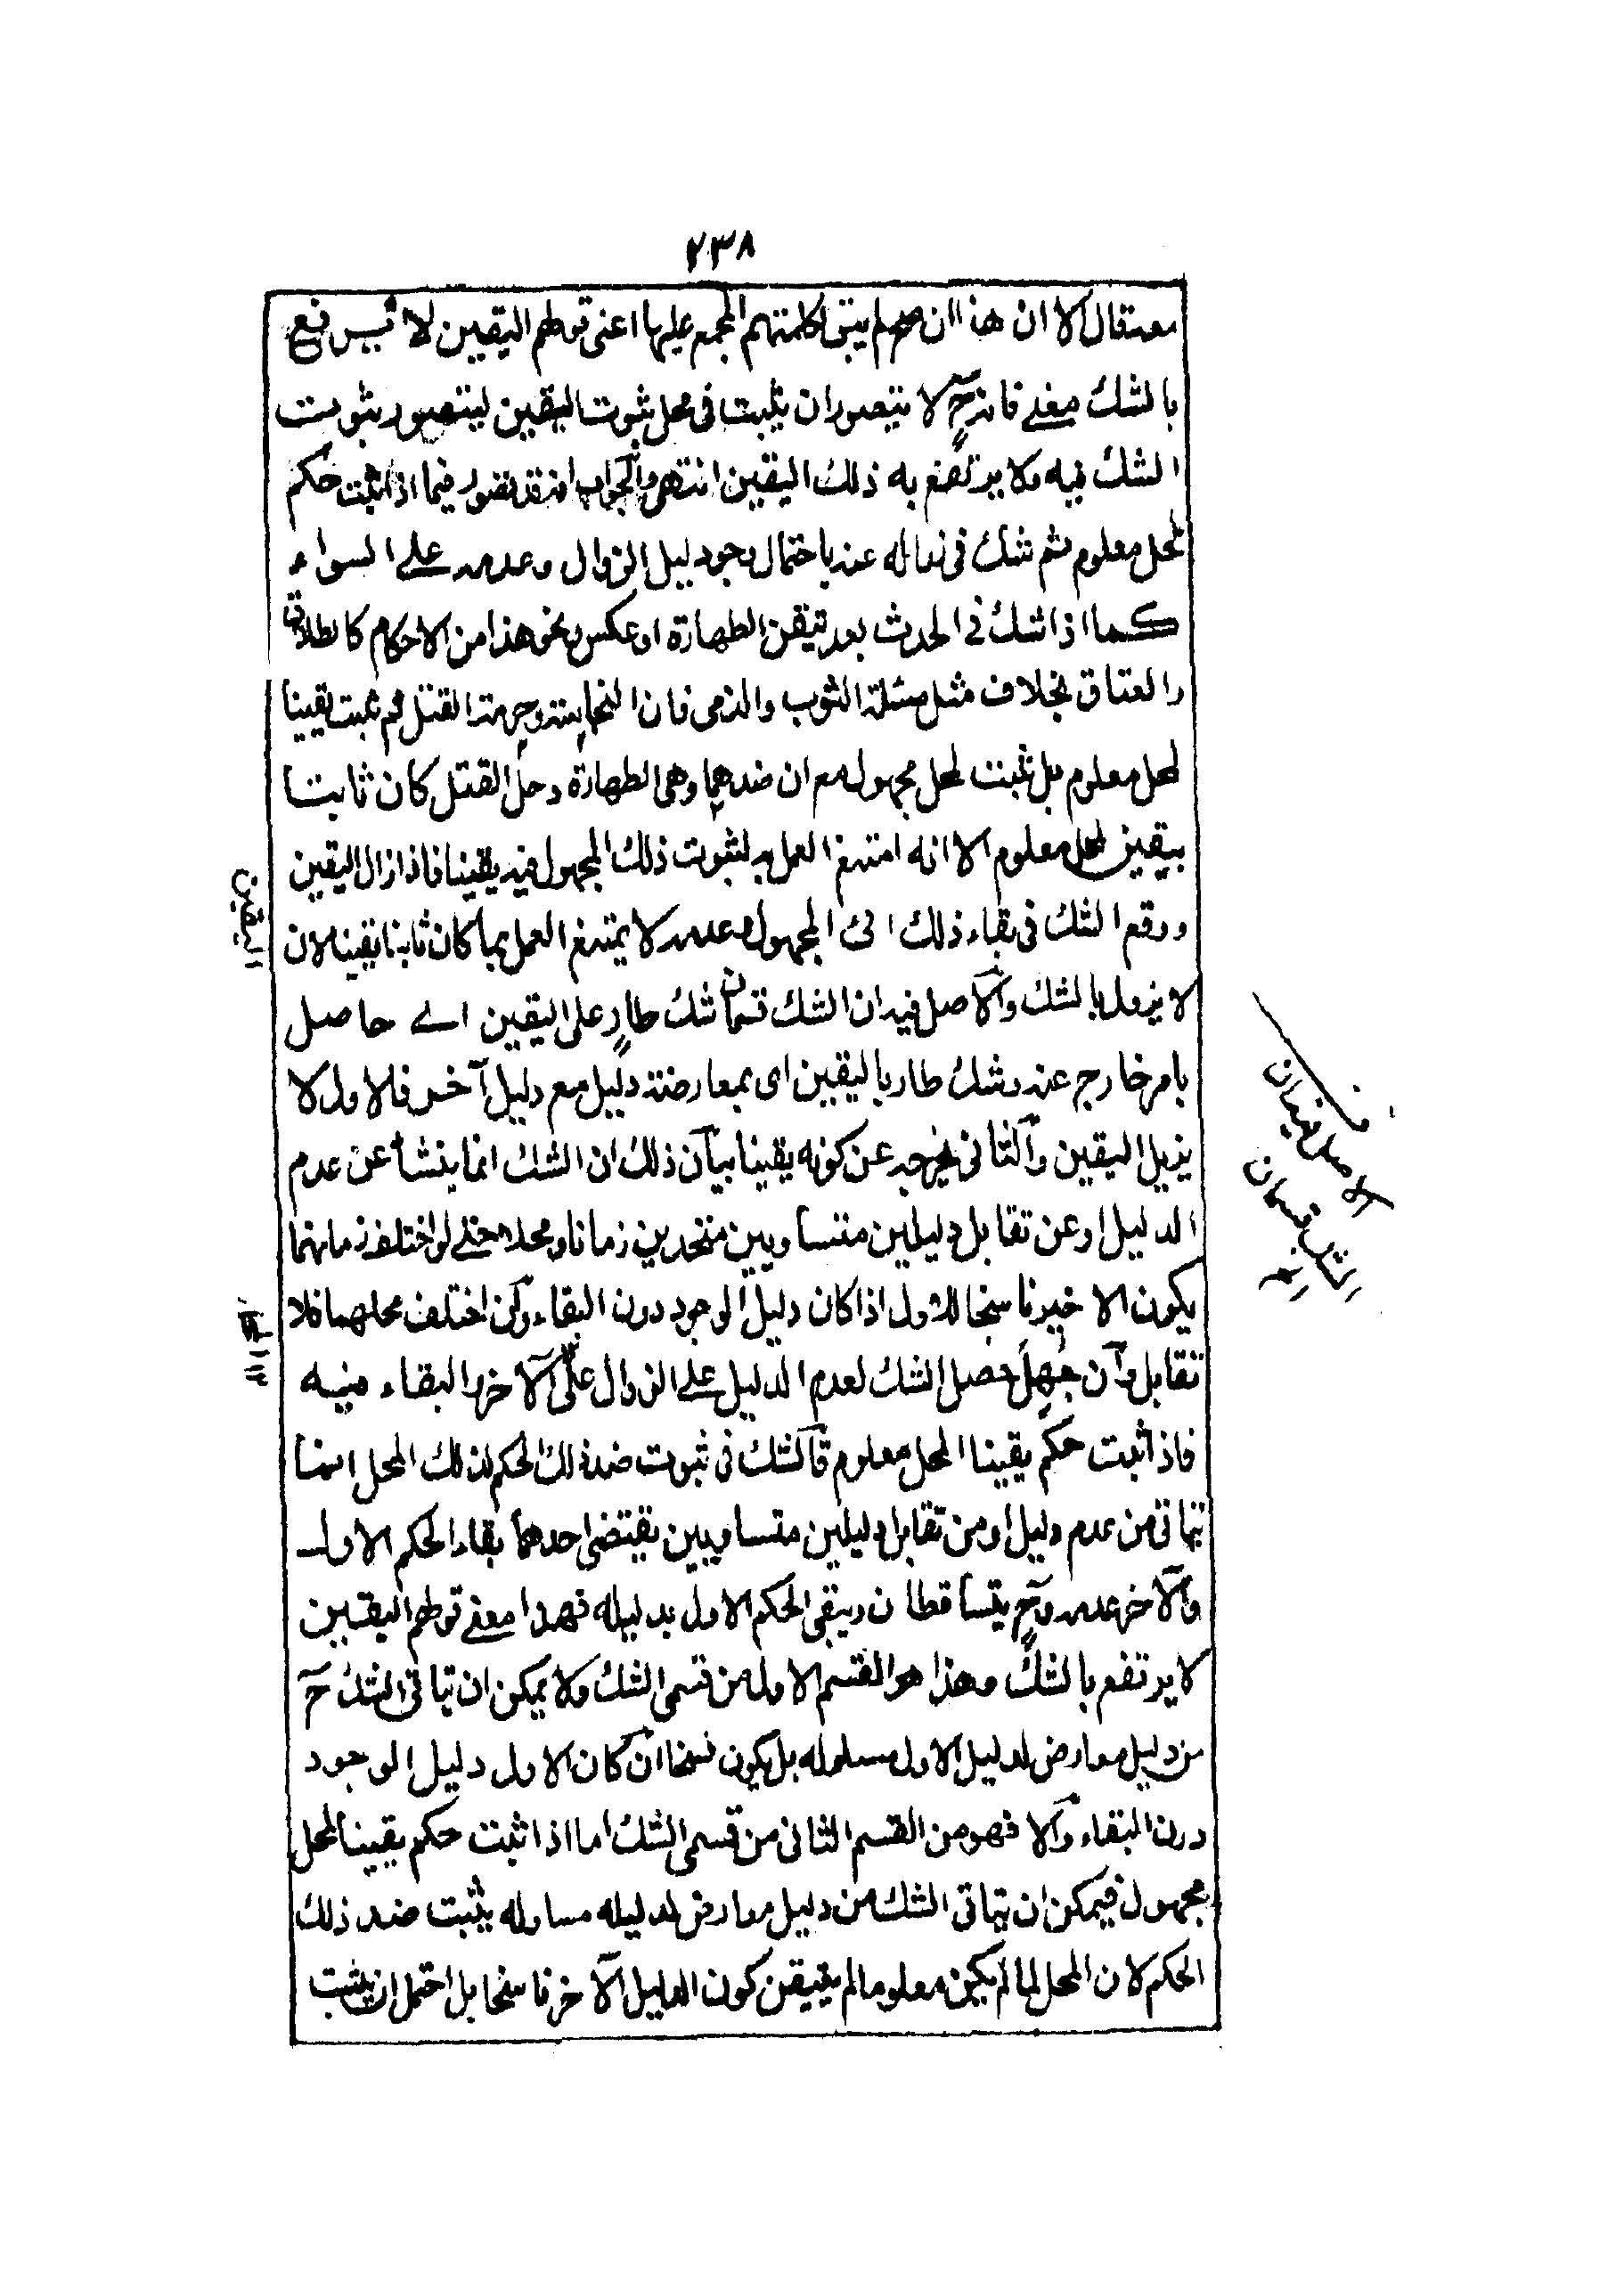 ٢٣٨
معه قال الا ان هذا ان صح لم يبق لكلمتهم المجمع عليها اعنى قولهم اليقين لا يرتفع
بالشك معنے فانه ح لا يتصور ان يثبت فى محل ثبوت اليقين ليتصور ثبوت
الشك فيه ولا يرتفع به ذلك اليقين انتهى والجواب انه قد يتصور فيما اذا ثبت حكم
لمحل معلوم ثم شك فى زواله عنه باحتمال وجود دليل الزوال وعدمه علے السواء
كما اذا شك فى الحدث بعد تيقن الطهارة او عكس ونحو هذا من الاحكام كالطلاق
والعتاق بخلاف مثل مسئلة الثوب والذمى فان النجاسة وحرمة القتل لم تثبت يقينا
لمحل معلوم بل ثبت لمحل مجهول مع ان ضدهما وهى الطهارة وحل القتل كان ثابتا
بيقين لمحل معلوم الا انه امتنع العمل به لثبوت ذلك المجهول فيه يقينا فاذا زال اليقين
ووقع الشك فى بقاء ذلك المجهول وعدمه لا يمتنع العمل بما كان ثابتا يقينا لان
اليقين
لا يزول بالشك والاصل فيه ان الشك قسمان شك طار على اليقين اے حاصل
بامر خارج عنه وشك طار باليقين اى بمعارضة دليل مع دليل آخر فالاول لا
يزيل اليقين والثانى يخرجه عن كونه يقينا بيان ذلك ان الشك انما ينشأ عن عدم
الدليل او عن تقابل دليلين متساويين متحدين زمانا ومحلا حتے لو اختلف زمانهما
يكون الاخير ناسخا للاول اذا كان دليل الوجود دون البقاء ولكن اختلف محلهما فلا
تقابل وان جهل حصل الشك لعدم الدليل علے الزوال على الآخر والبقاء فيه
فاذا ثبت حكم يقينا المحل معلوم فالشك فى ثبوت ضد ذلك الحكم لذلك المحل انما
يتاتى من عدم دليل او من تقابل دليلين متساويين يقتضى احدهما بقاء الحكم الاول
والآخر عدمه وح يتساقطان ويبقى الحكم الاول بدليله فهذا معنے قولهم اليقين
لا يرتفع بالشك وهذا هو القسم الاول من قسمى الشك ولا يمكن ان يتاتى الشك ح
من دليل معارض لدليل الاول مساو له بل يكون نسخا ان كان الاول دليل الوجود
دون البقاء والا فهو من القسم الثانى من قسمى الشك اما اذا ثبت حكم يقينا لمحل
مجهول فيمكن ان يتاتى الشك من دليل معارض لدليله مساو له يثبت ضد ذلك
الحكم لان المحل لما لم يكن معلوما لم يتيقن كون الدليل الآخر ناسخا بل احتمل ان يثبت
الاصل فيه ان
الشك قسمان